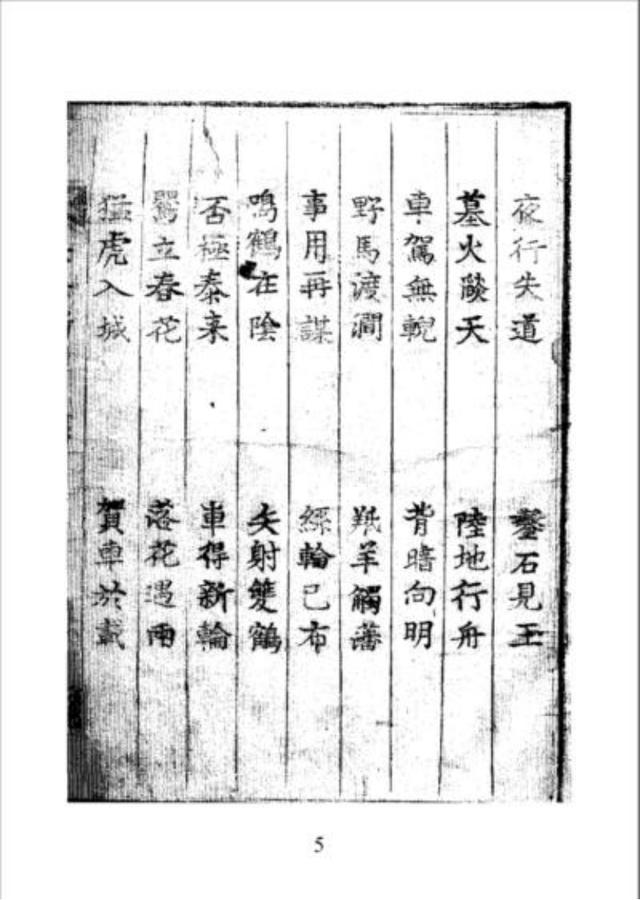 夜行失道 鑿石見玉
墓火燄天 陸地行舟
車駕無輗 背暗向明
野馬渡澗 羝羊觸藩
事用再謀 經輪已布
鳴鶴在陰 矢射雙鶴
否極泰来 車得新輪
鶯立春花 落花遇雨
猛虎入城 賀車於載
5